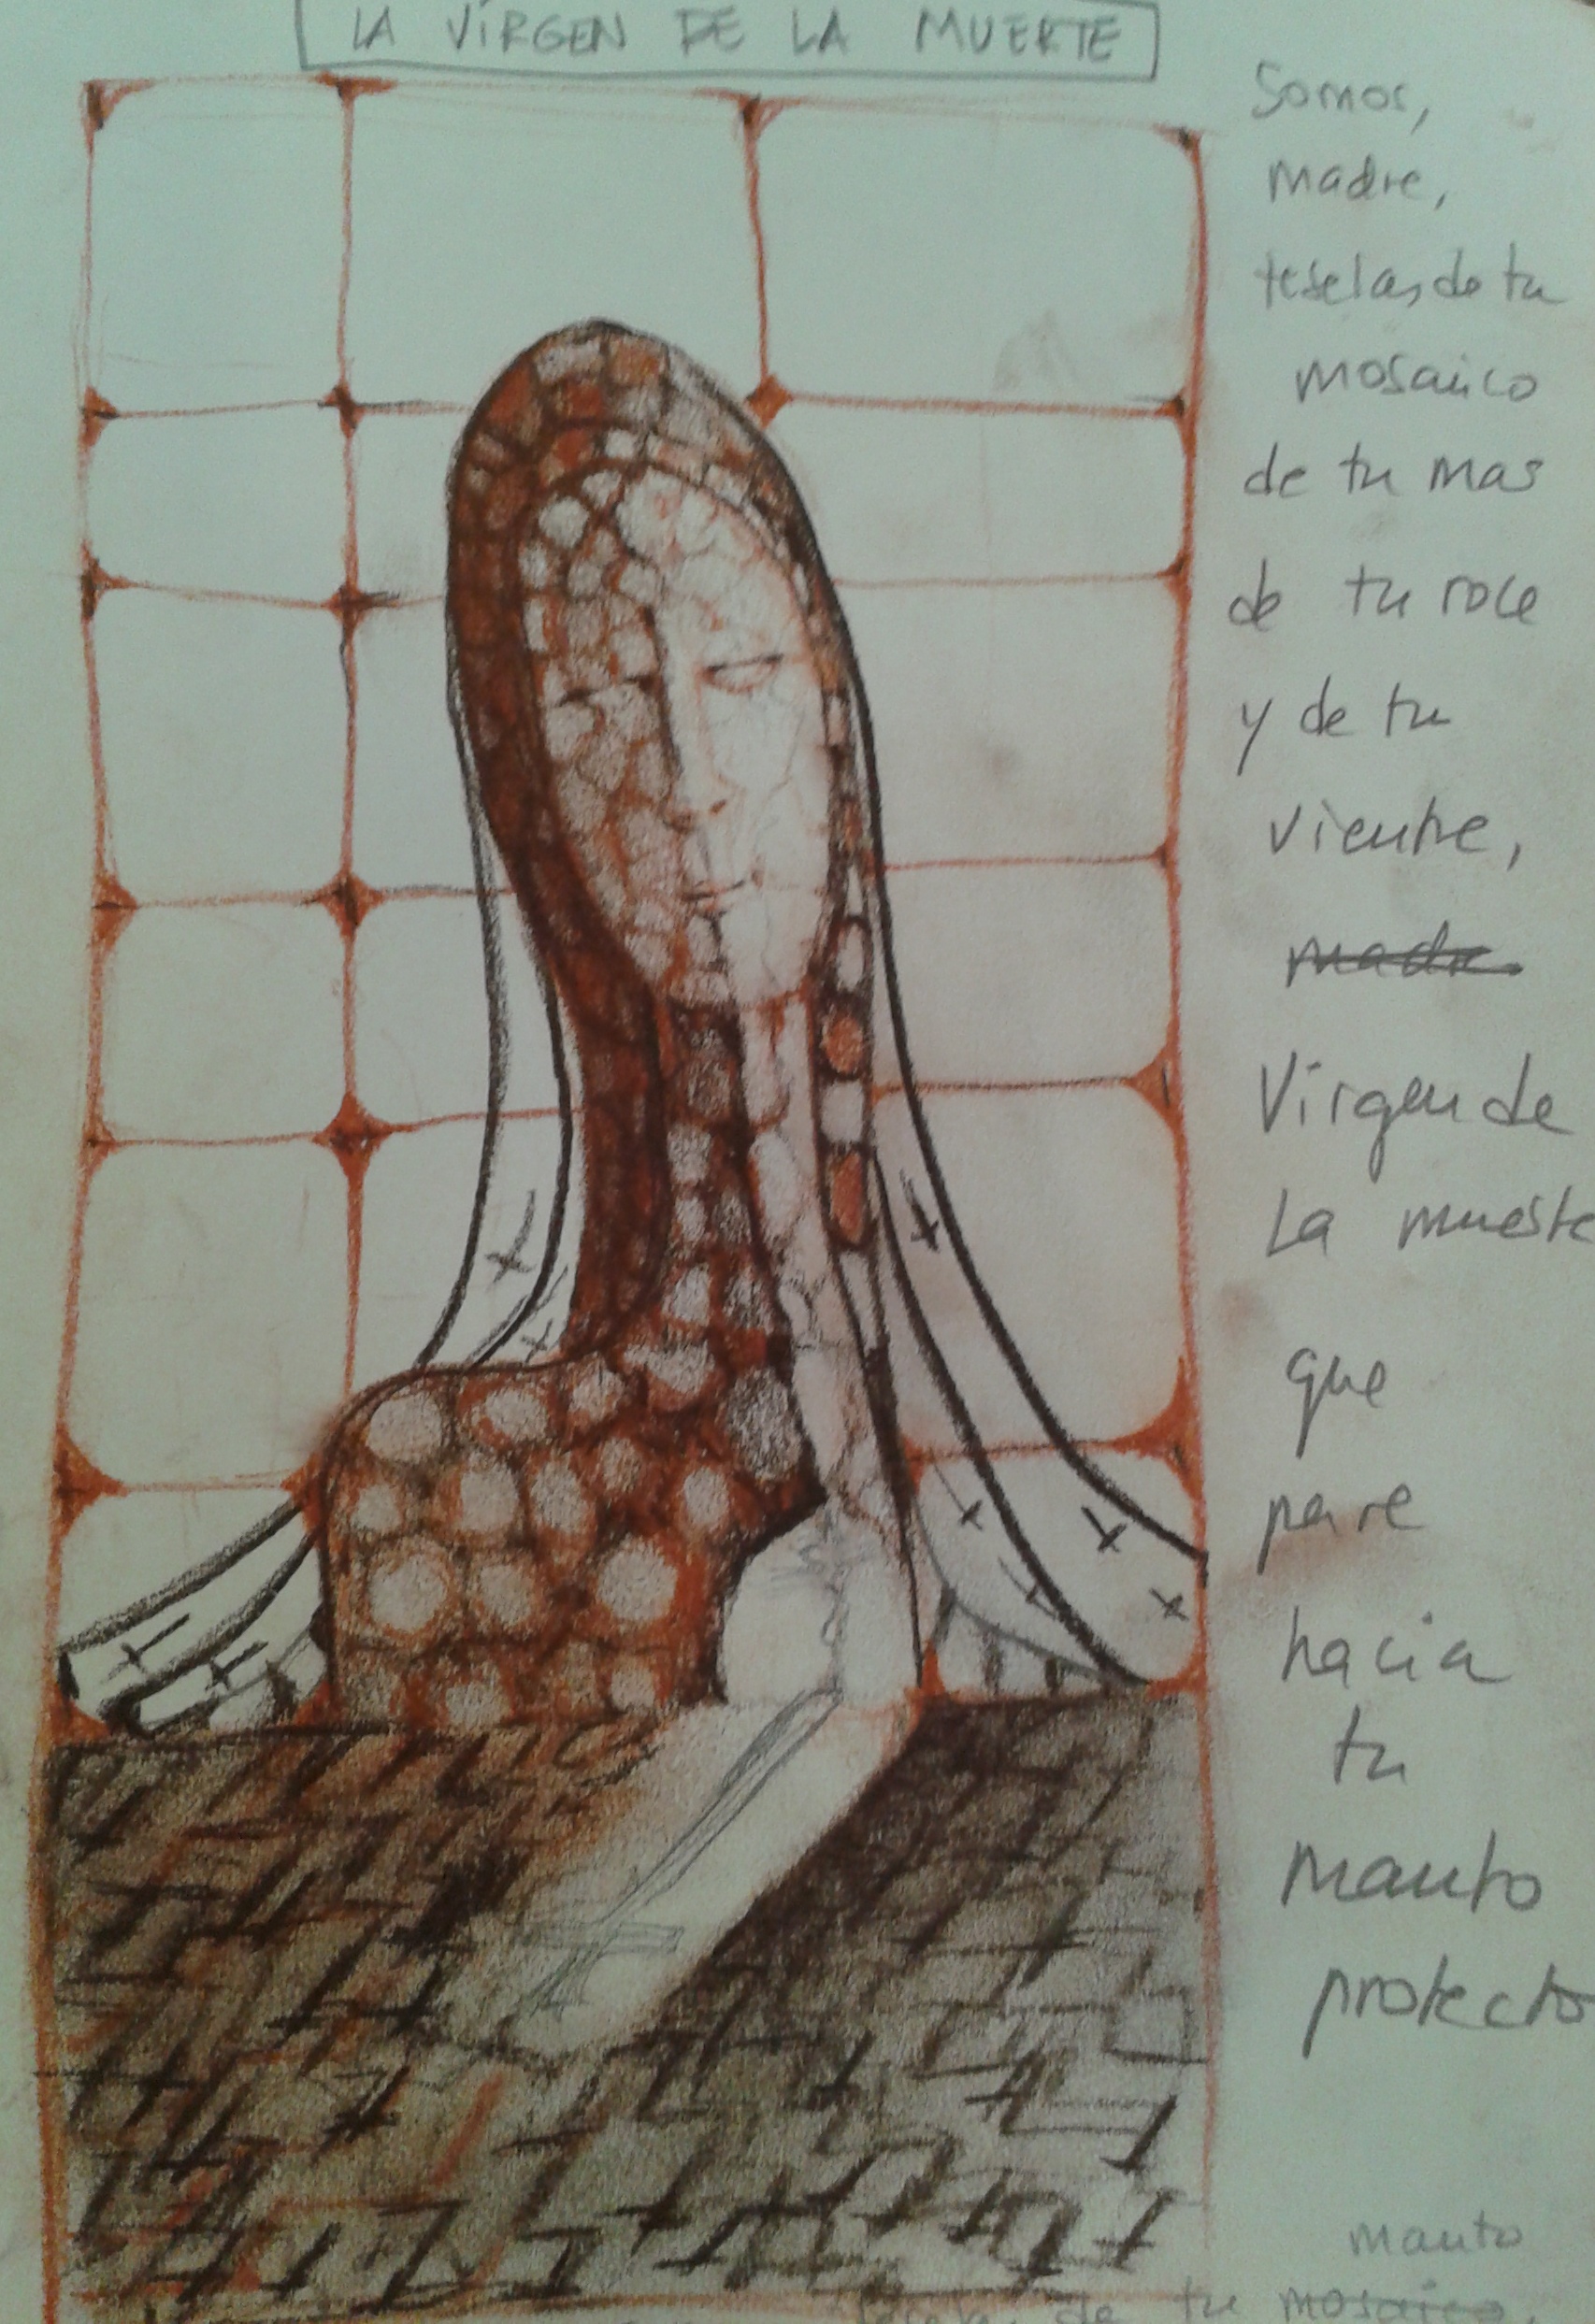 LA VIRGEN DE LA MUERTE
Somos,
madre,
teselas de tu
mosaico
de tu mas
de tu roce
y de tu
vientre,
madre
Virgen de
La muerte
que
pare
hacia
tu
manto
protecto
manto
de tu mosaico